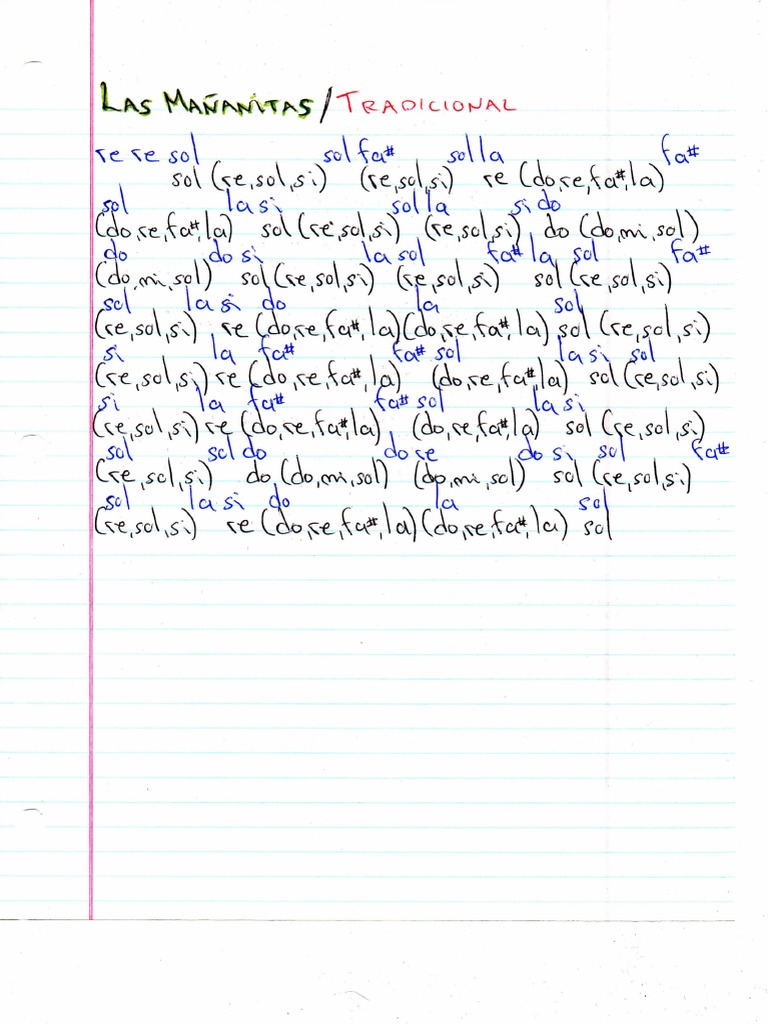 LAS MAÑANITAS/TRADICIONAL
re re sol sol fa# sol la fa#
sol (re,sol,si) (re,sol,si) re (do,re,fa#,la)
sol la si sol la si do
(do,re,fa#,la) sol (re,sol,si) (re,sol,si) do (do,mi,sol)
do do si la sol fa# la sol fa#
(do,mi,sol) sol (re,sol,si) (re,sol,si) sol (re,sol,si)
sol la si do la sol
(re,sol,si) re (do,re,fa#,la)(do,re,fa#,la) sol (re,sol,si)
si la fa# fa# sol la si sol
(re,sol,si) re (do,re,fa#,la) (do,re,fa#,la) sol (re,sol,si)
si la fa# fa# sol la si
(re,sol,si) re (do,re,fa#,la) (do,re,fa#,la) sol (re,sol,si)
sol sol do do re do si sol fa#
(re,sol,si) do (do,mi,sol) (do,mi,sol) sol (re,sol,si)
sol la si do la sol
(re,sol,si) re (do,re,fa#,la)(do,re,fa#,la) sol